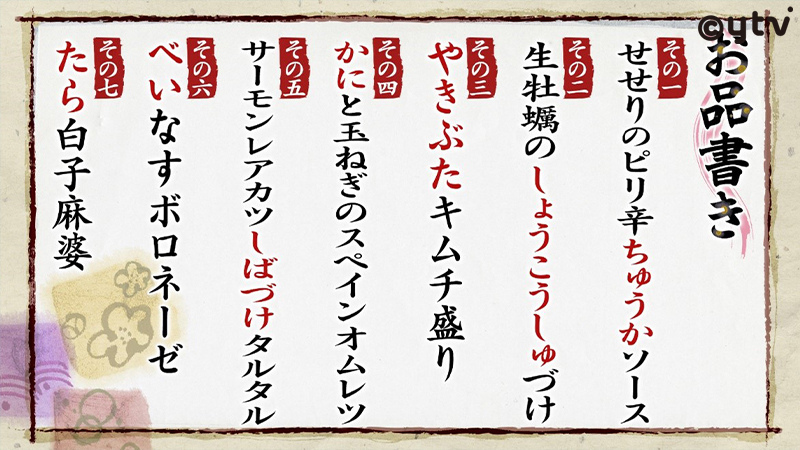 ©ytv
お品書き
その一
せせりのピリ辛ちゅうかソース
その二
生牡蠣のしょうこうしゅづけ
その三
やきぶたキムチ盛り
その四
かにと玉ねぎのスペインオムレツ
その五
サーモンレアカツしばづけタルタル
その六
べいなすボロネーゼ
その七
たら白子麻婆